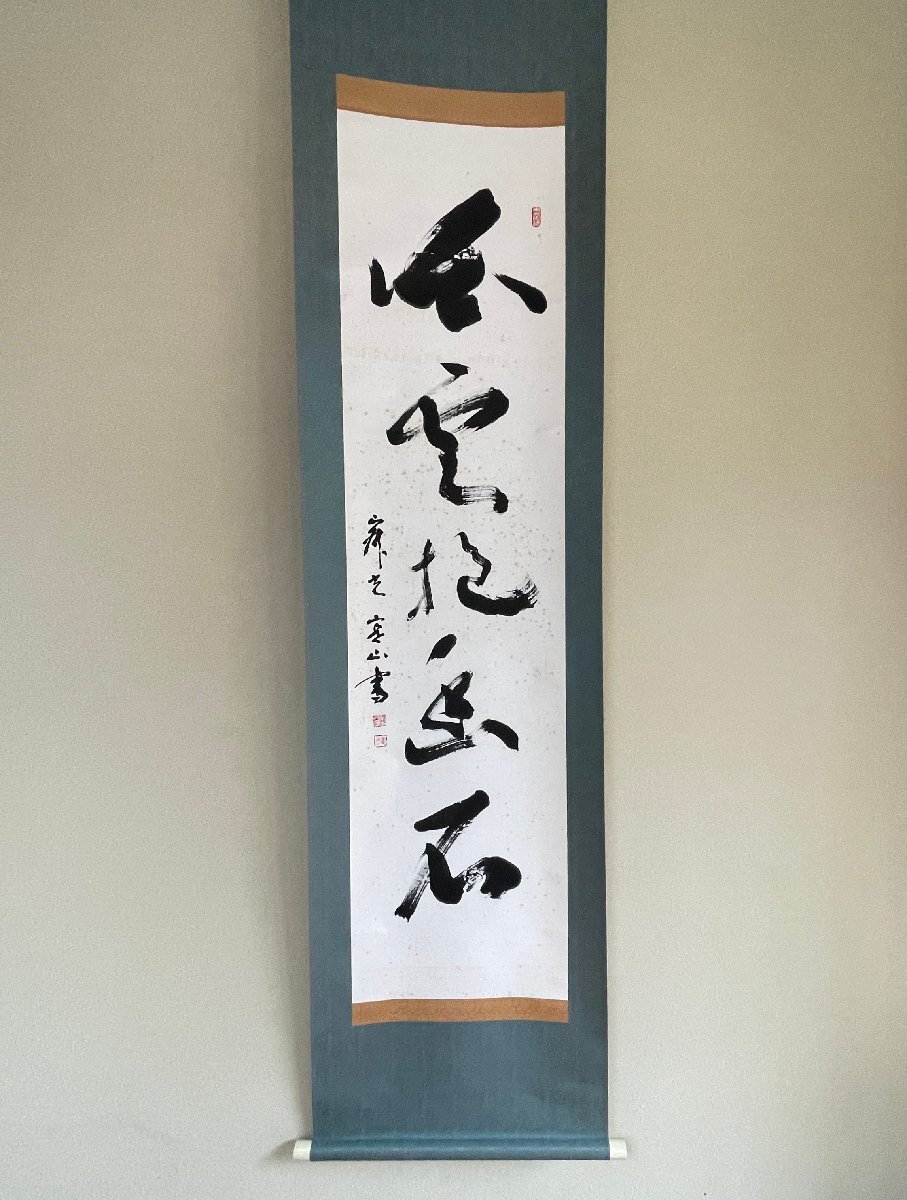 白雲抱幽石
寒山書